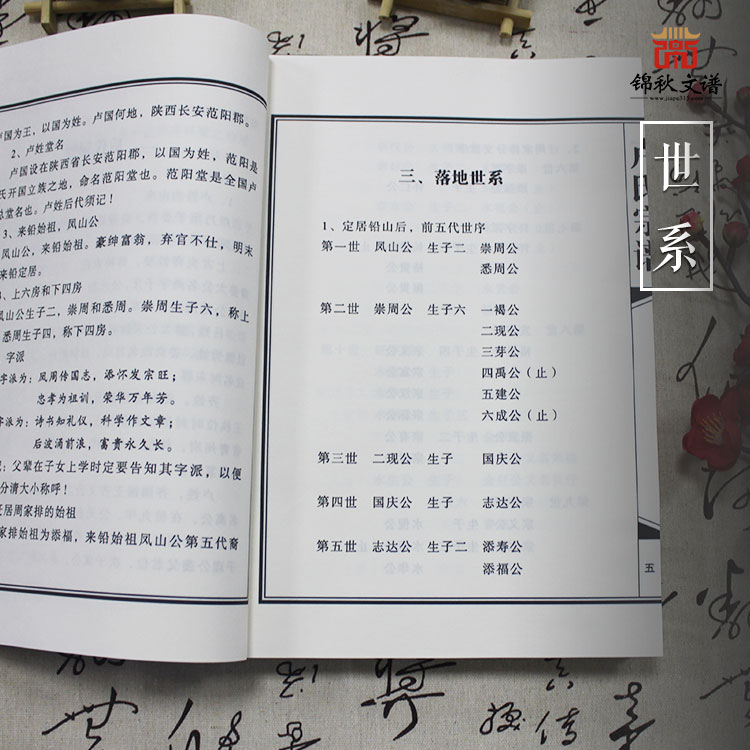 卢国为王，以国为姓。卢国何地，陕西长安范阳郡。
2、卢姓堂名
卢国设在陕西省长安范阳郡，以国为姓，范阳是
氏开国立族之地，命名范阳堂也。范阳堂是全国卢
总堂名也。卢姓后代须记！
3、来铅始祖，凤山公
凤山公，来铅始祖。豪绅富翁，弃官不仕，明末
来铅定居。
、上六房和下四房
凤山公生子二，崇周和悉周。崇周生子六，称上
悉周生子四，称下四房。
字派
字派为：凤周传国志，添怀发宗旺；
忠孝为祖训，荣华万年芳。
字派为：诗书知礼仪，科学作文章；
后波涌前浪，富贵永久长。
：父辈在子女上学时定要告知其字派，以便
分清大小称呼！
迁居周家排的始祖
家排始祖为添福，来铅始祖凤山公第五代裔
三、落地世系
1、定居铅山后，前五代世序
第一世 凤山公 生子二 崇周公
悉周公
第二世 崇周公 生子六 一褐公
二现公
三芽公
四禹公（止）
五建公
六成公（止）
第三世 二现公 生子 国庆公
第四世 国庆公 生子 志达公
第五世 志达公 生子二 添寿公
添福公
卢氏宗谱
五
锦秋文谱
www.jiapu315.com
世系